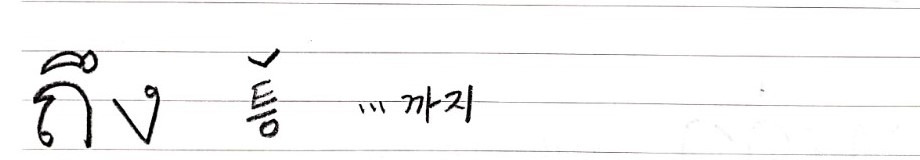 ถึง 틍̌ ...까지